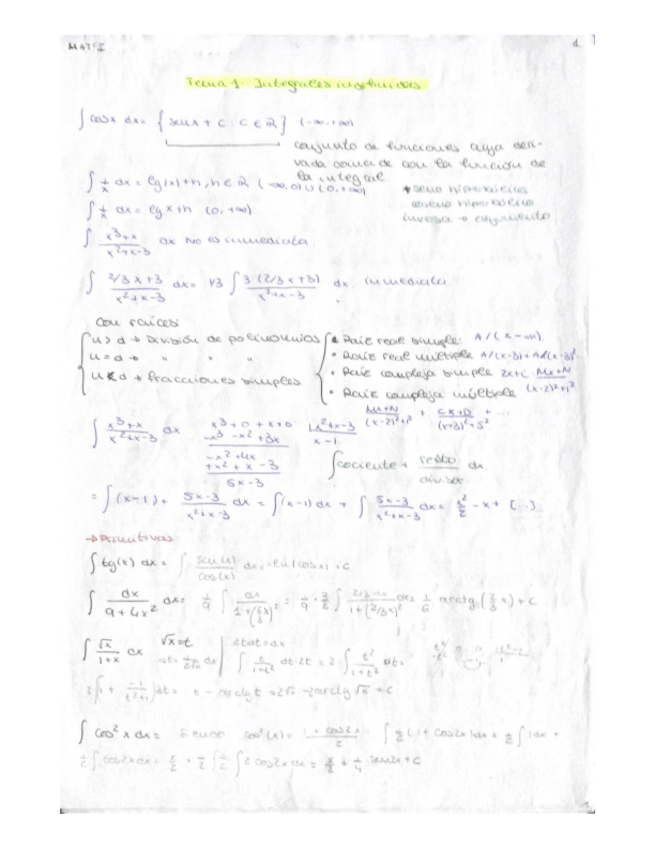 MATI 1
Tema 1. Integrales indefinidas
∫ cosx dx = { senx + C : C ∈ R } (-∞, +∞)
conjunto de funciones cuya deri-
vada coincide con la función de
la integral
∫ 1/x dx = lg|x| + n, n ∈ R (-∞, 0) ∪ (0, +∞)
∫ 1/x dx = lg x + n (0, +∞)
+ seno hiperbólico
coseno hiperbólico
inversa → conjunto
∫ x³+x / x²+x-3 dx No es inmediata.
∫ 2/3 x + 3 / x²+x-3 dx = 1/3 ∫ 3 (2/3 x + 3) / x²+x-3 dx. inmediata
Con raíces:
n > d → División de polinomios
n = d → " " "
n < d → fracciones simples
• Raíz real simple: A/(x-m)
• Raíz real múltiple
• Raíz compleja simple
• Raíz compleja múltiple
∫ x³+x / x²+x-3 dx
x³ + 0 + x + 0 | x²+x-3
-x³ -x² + 3x x - 1
-x² + 4x
+x² + x - 3
5x - 3
∫ cociente + resto / divisor dx
= ∫ (x-1) + 5x-3 / x²+x-3 dx = ∫ (x-1) dx + ∫ 5x-3 / x²+x-3 dx = x²/2 - x + [...]
→ Primitivas
∫ tg(x) dx = ∫ sen(x) / cos(x) dx = -ln|cos x| + C
∫ dx / 9+4x² dx = 1/9 ∫ dx / 1+(2/3 x)² = 1/9 · 3/2 ∫ 2/3 dx / 1+(2/3x)² = 1/6 arctg (2/3 x) + C
∫ √x / 1+x dx √x = t | 2tdt = dx
∫ t / 1+t² dt·2t = 2 ∫ t² / 1+t² dt =
2 ∫ 1 + -1 / t²+1 dt = t - arctg t = 2√x - 2arctg √x + C
∫ cos² x dx = cos²(x) = 1 + cos2x / 2 ∫ 1/2 (1 + cos2x) dx = 1/2 ∫ 1dx +
1/2 ∫ cos2x dx = x/2 + 1/2 · 1/2 ∫ 2 cos2x dx = x/2 + 1/4 sen2x + C